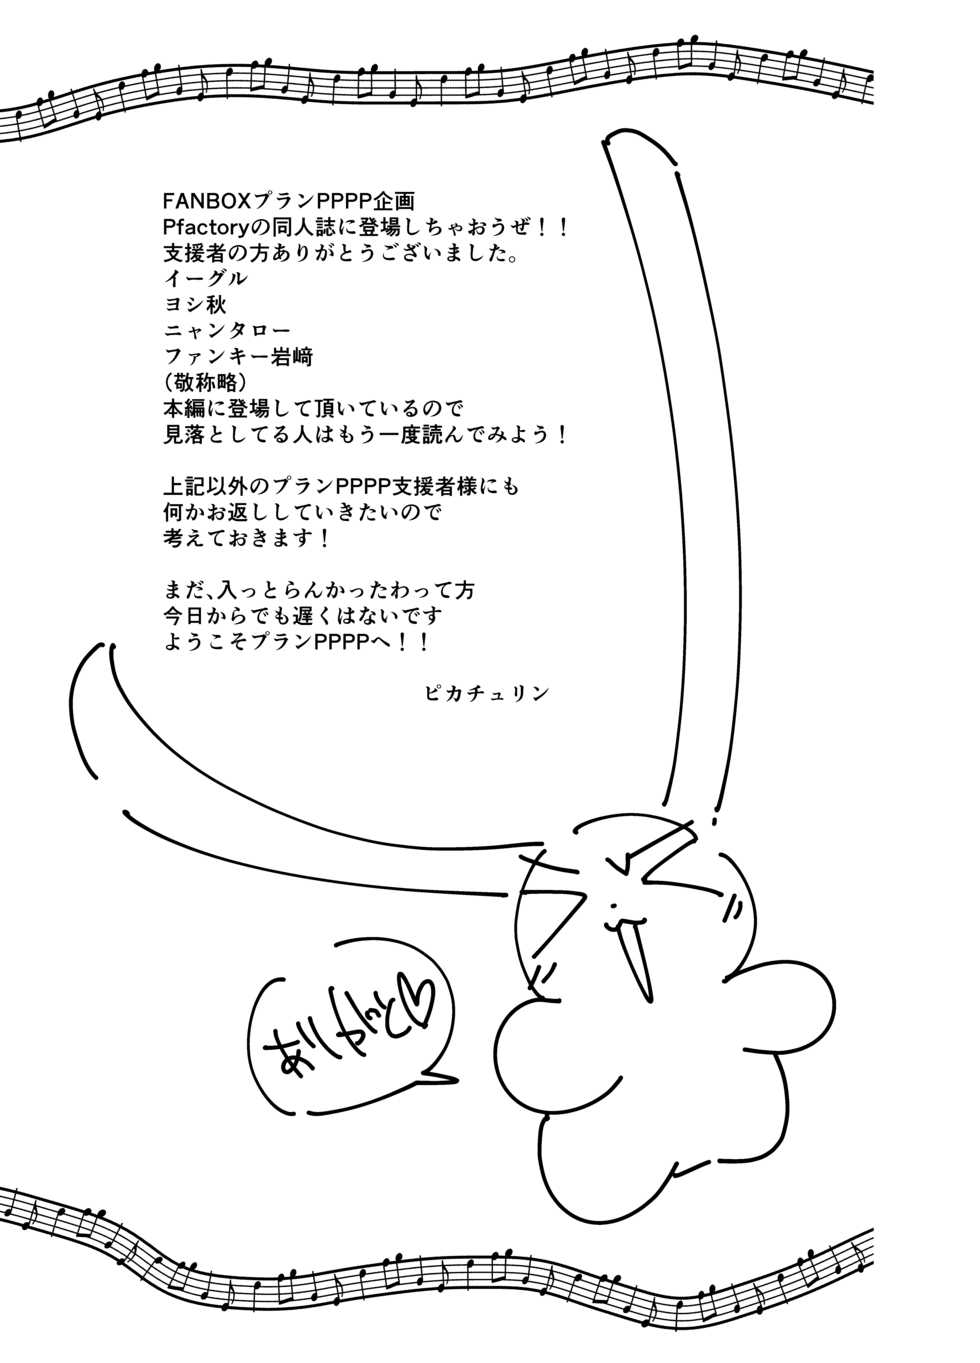 FANBOXプランPPPP企画
Pfactoryの同人誌に登場しちゃおうぜ！！
支援者の方ありがとうございました。
イーグル
ヨシ秋
ニャンタロー
ファンキー岩﨑
（敬称略）
本編に登場して頂いているので
見落としてる人はもう一度読んでみよう！
上記以外のプランPPPP支援者様にも
何かお返ししていきたいので
考えておきます！
まだ、入っとらんかったわって方
今日からでも遅くはないです
ようこそプランPPPPへ！！
ピカチュリン
ありがとっ♡